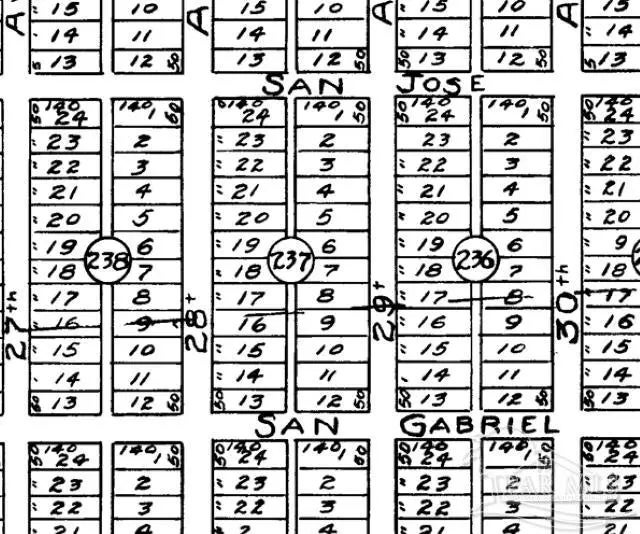 A 15 10 A 15 10 A 15 10 A 15
14 11 14 11 14 11 14
5 13 12 50 13 12 50 50 13 12 50 5 13
SAN JOSE
50 140 140 50 140 140 50 50 140 140 50 50 140
24 1 24 1 24 1 24
23 2 23 2 23 2 23
22 3 22 3 22 3 22
21 4 21 4 21 4 21
20 5 20 5 20 5 20
19 6 19 6 19 6 9
238 237 236
18 7 18 7 18 7 18
17 8 17 8 17 8 17
27th 28t 29t 30th
16 9 16 9 16 9 16
15 10 15 10 15 10 15
14 11 14 11 14 11 14
50 13 12 50 13 12 50 50 13 12 50 50 13
SAN GABRIEL
50 140 140 50 50 140 140 50 50 140 140 50 50 140
24 1 24 1 24 1 24
23 2 23 2 23 2 23
22 3 22 3 22 3 22
21 4 2 4 21 4 21